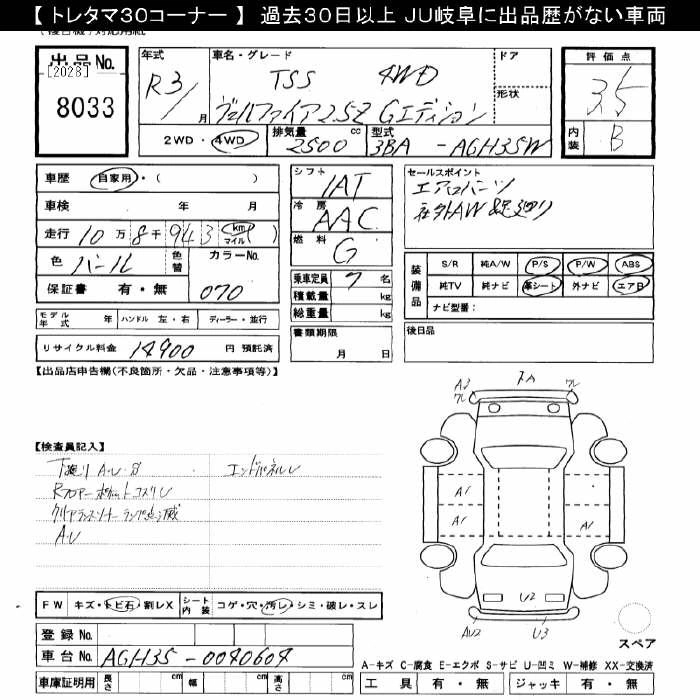 【トレタマ30コーナー】 過去30日以上 JU岐阜に出品歴がない車両
出品No.
[2028]
8033
年式 R3/ 月
車名・グレード TSS 4WD
ヴェルファイア2.5Z Gエディション
ドア
形状
評価点
3.5
内装 B
2WD・4WD 排気量 2500 cc 型式 3BA - AGH35W
車歴 自家用・( )
車検 年 月
走行 10万8千943 km マイル( )
色 パール 色替 カラーNo.
保証書 有・無 070
シフト IAT
冷房 AAC
燃料 G
乗車定員 7 名
積載量 kg
総重量 kg
セールスポイント
エアロパーツ
社外AW
装備品 S/R 純A/W P/S P/W ABS
純TV 純ナビ 革シート 外ナビ エアB
ナビ型番:
モデル年式 年 ハンドル 左・右 ディーラー・並行
リサイクル料金 14900 円 預託済
書類期限
月 日
後日品
【出品店申告欄(不良箇所・欠品・注意事項等)】
【検査員記入】
A・U・S エンドパネルU
クリアランスソナーランプ点滅
A・U
A3
A1
A1
A1
U2
AU2
U3
FW キズ・トビ石・割レX シート内装 コゲ・穴・汚レ・シミ・破レ・スレ
登録No.
車台No. AGH35-0040604
車庫証明用 長さ cm 幅 cm 高さ cm
スペア
A-キズ C-腐食 E-エクボ S-サビ U-凹ミ W-補修 XX-交換済
工具 有・無 ジャッキ 有・無